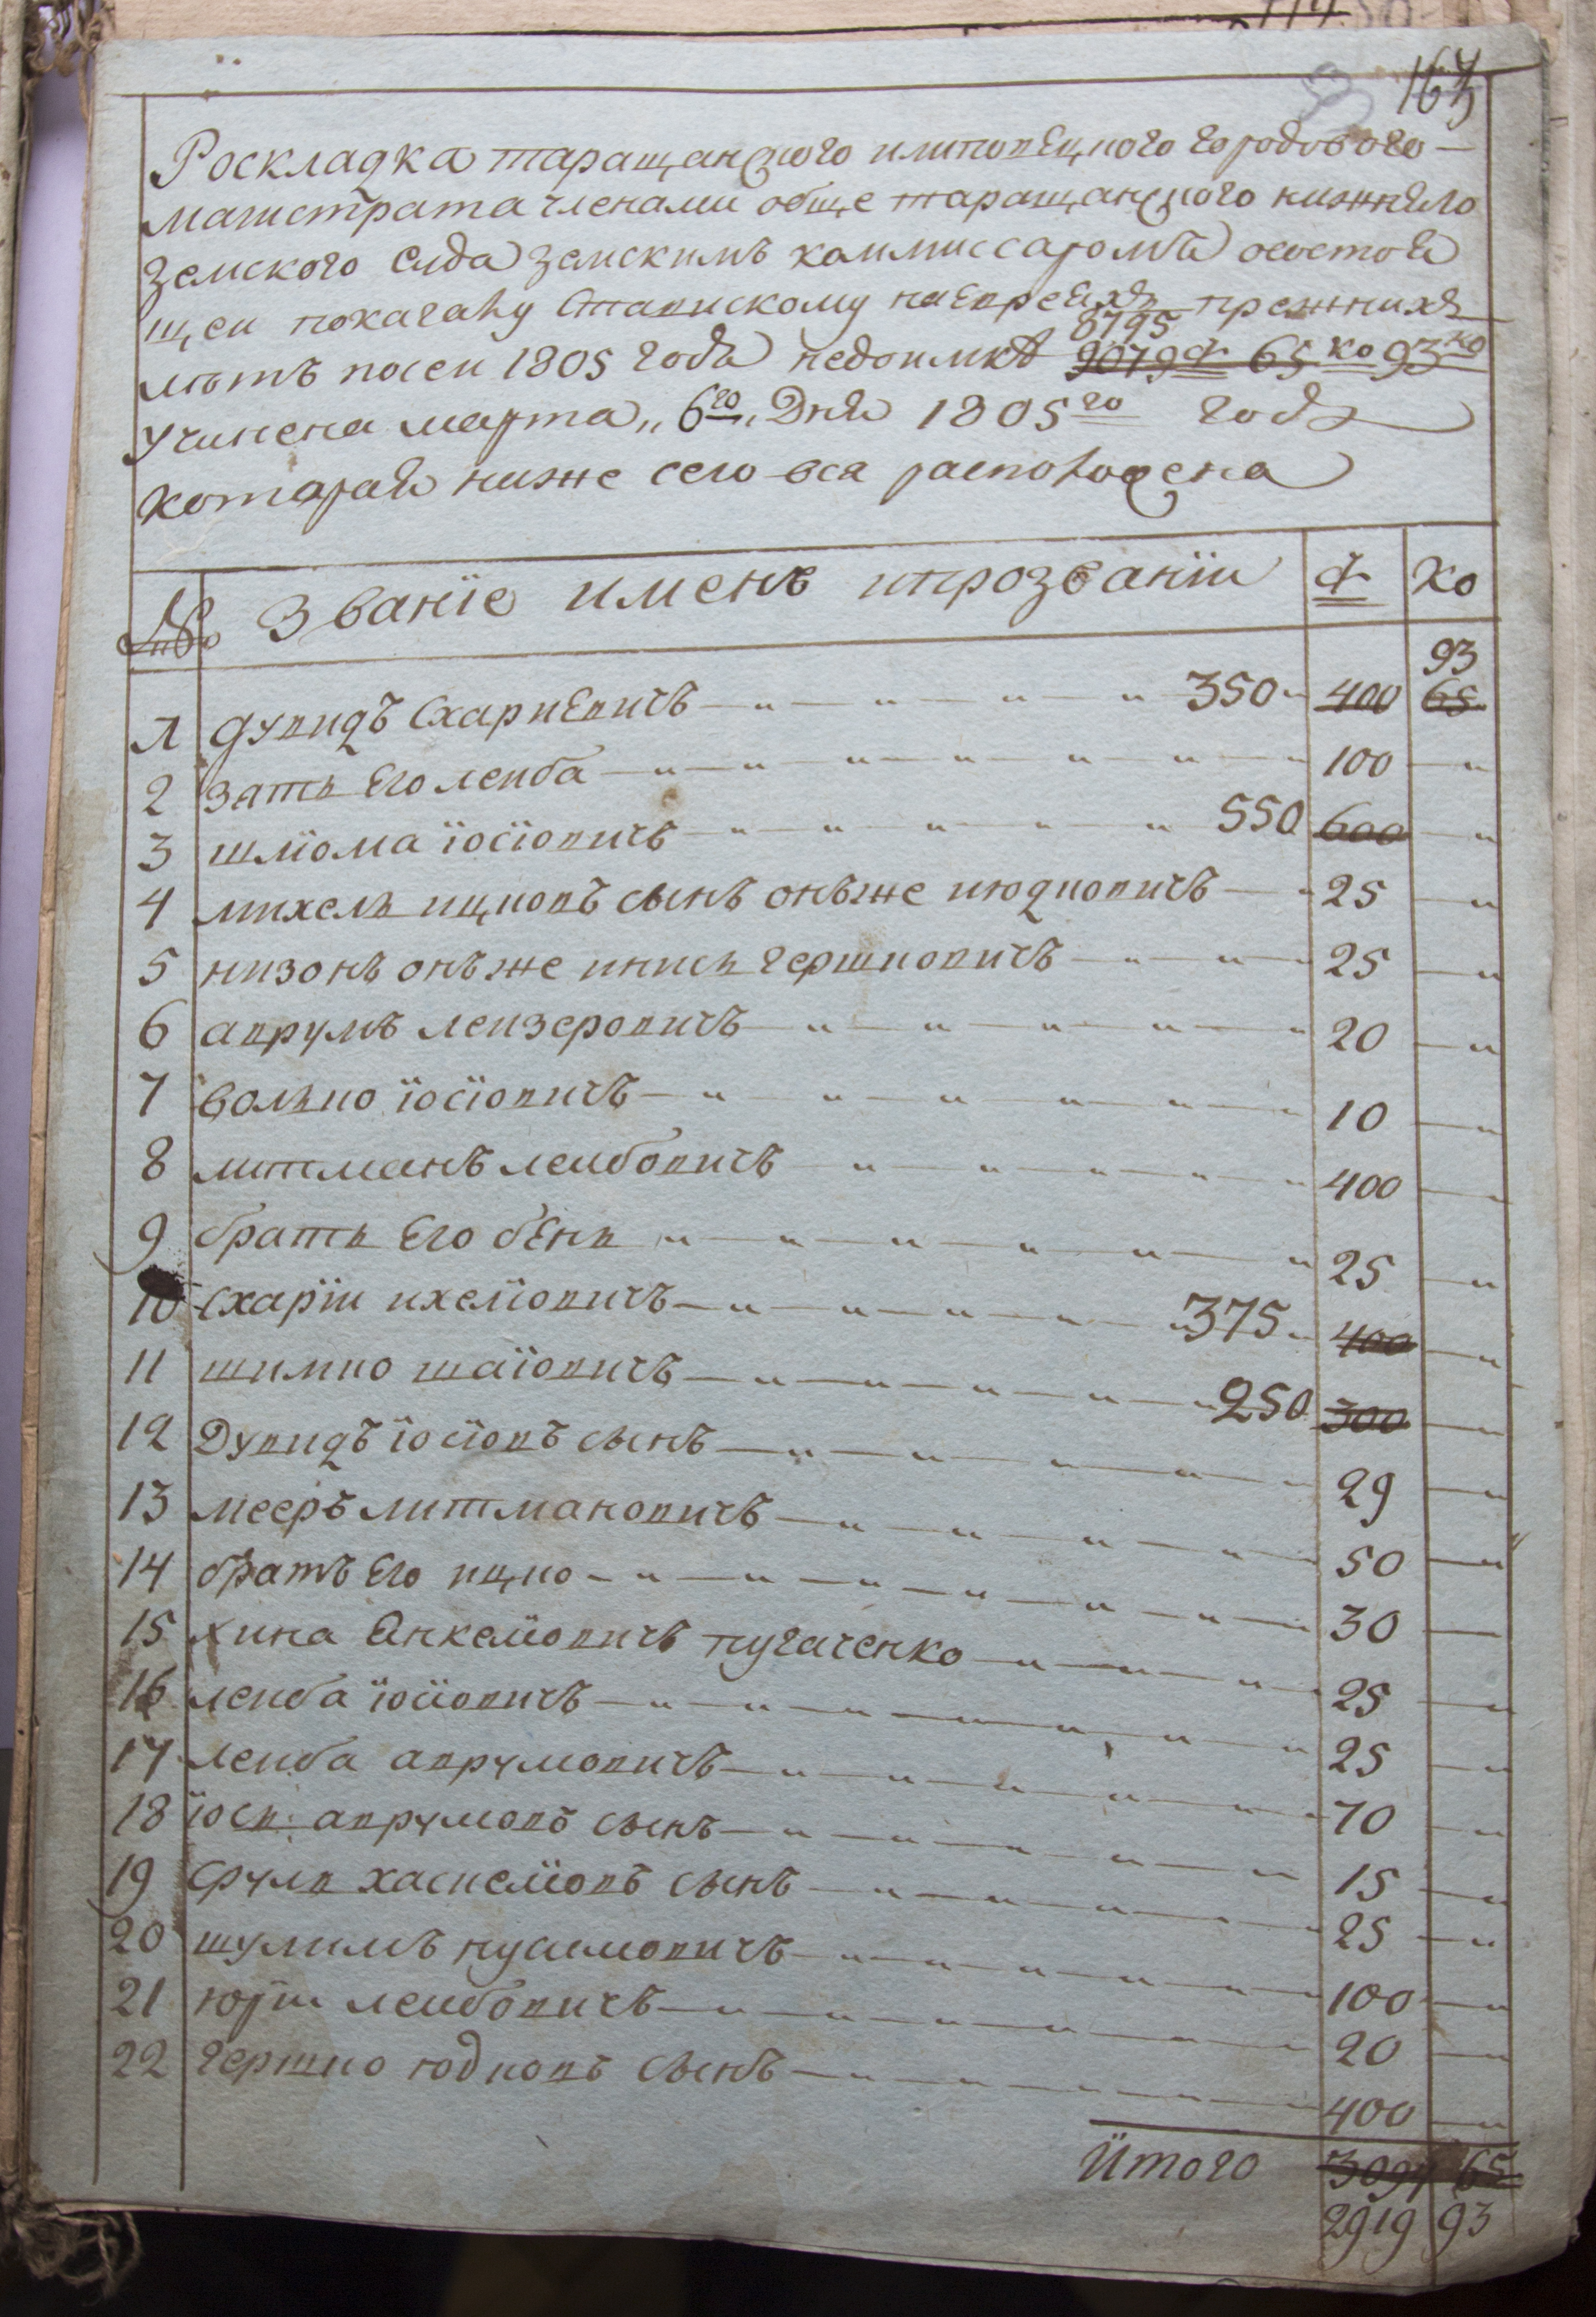 167
Роскладка таращанского илиповецкого городового
магистрата членами обще таращанского нижняго
земского суда земскимъ коммиссаромъ осостоя
щеи покагалу Ставискому наевреяхъ прежнихъ
8795
лѣтъ посеи 1805 года недоимкѣ 9079 ф 65 ко 93 ко
учинена марта „6го„ Дня 1805го года
которая ниже сего вся расположена
№ Званїе именъ ипрозванїи ф ко
93
1 дувидъ Схаріевичъ 350 400 65
2 зять Его леиба 100
3 шліома іосіовичъ 550 600
4 михель ицковъ сынъ онъже июдковичъ 25
5 низонъ онъже иписъ гершковичъ 25
6 аврумъ леизеровичъ 20
7 волько іосіовичъ 10
8 литманъ леибовичъ 400
9 братъ Его бень 25
10 Схарїи ихеліовичъ 375 400
11 шимко шаіовичъ 250 300
12 Дувидъ іосіовъ сынъ 29
13 мееръ литмановичъ 50
14 братъ Его ицко 30
15 хина Янкеліовичъ пугаченко 25
16 леиба іосіовичъ 25
17 леиба аврумовичъ 70
18 іось аврумовъ сынъ 15
19 сруль хаскеліовъ сынъ 25
20 шулимъ нухимовичъ 100
21 юрїи леибовичъ 20
22 гершко юдковъ сынъ 400
Итого 3094 65
2919 93